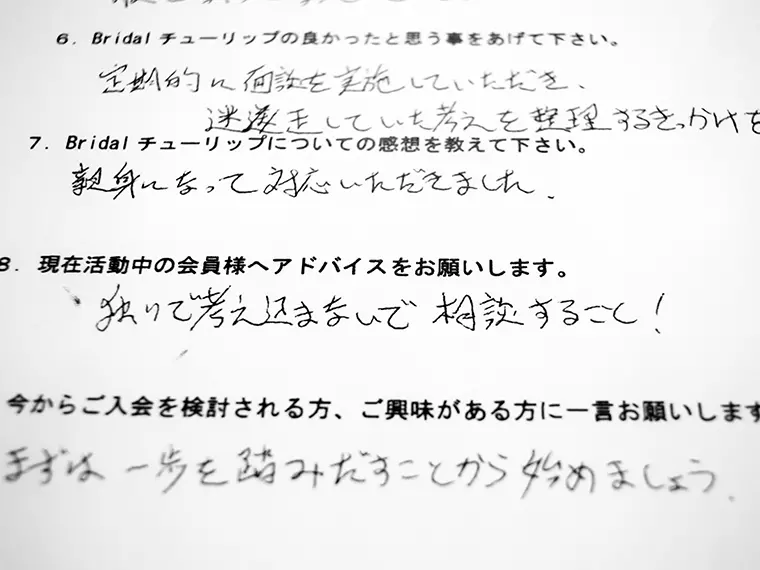 6. Bridalチューリップの良かったと思う事をあげて下さい。
定期的に面談を実施していただき、
迷走していた考えを整理するきっかけを
7. Bridalチューリップについての感想を教えて下さい。
親身になって対応いただきました.
8. 現在活動中の会員様へアドバイスをお願いします。
独りで考え込まないで 相談すること!
今からご入会を検討される方、ご興味がある方に一言お願いします
まずは一歩を踏みだすことから始めましょう.